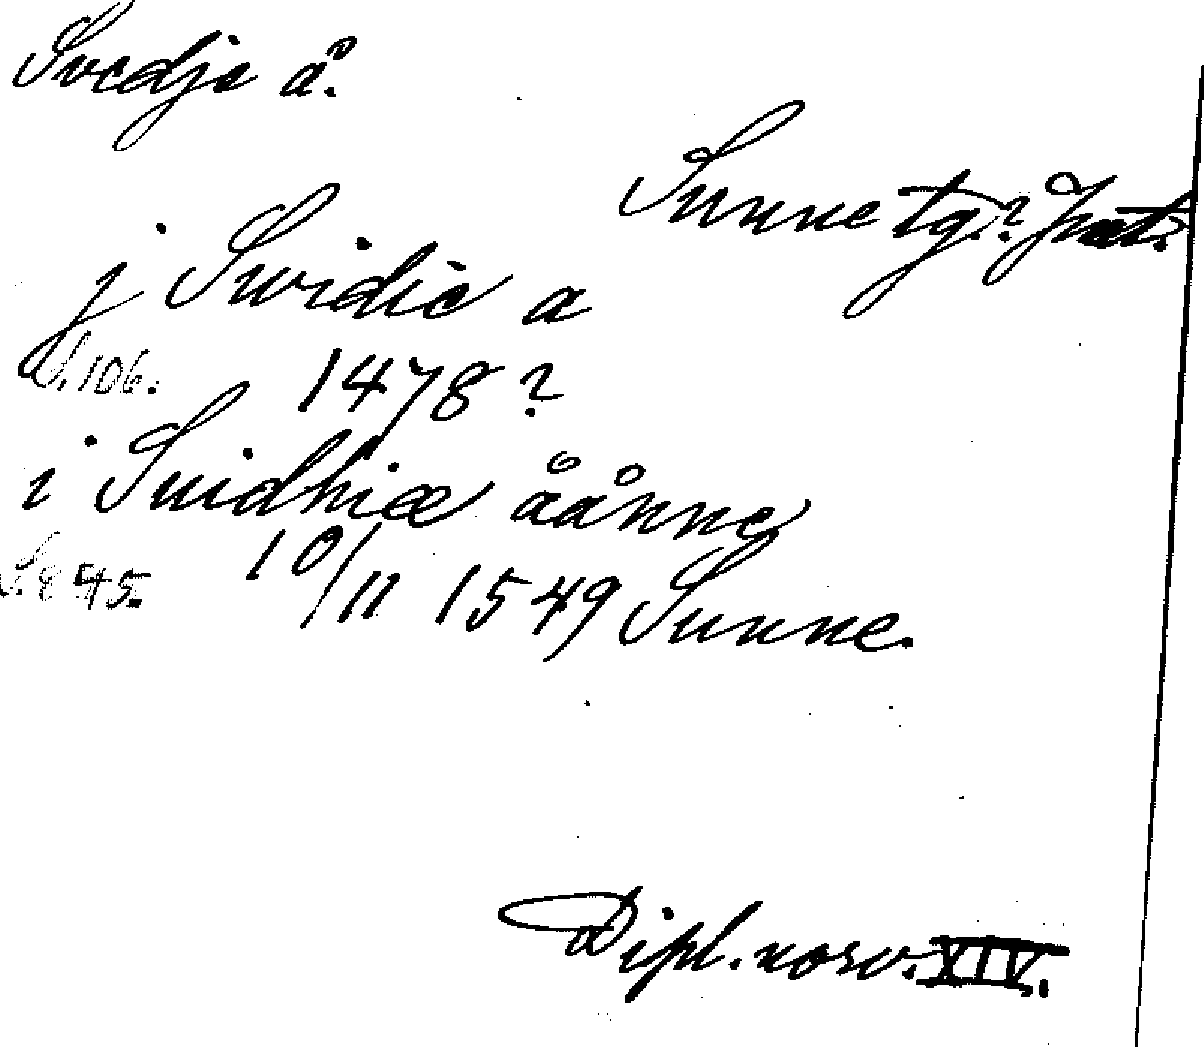 Svedje å.
Sunne tg.? Jmtl.
j Swidie a
S. 106. 1478?
i Suidhiæ åånne
S. 845. 10/11 1549 Sunne.
Dipl. norv. XIV.